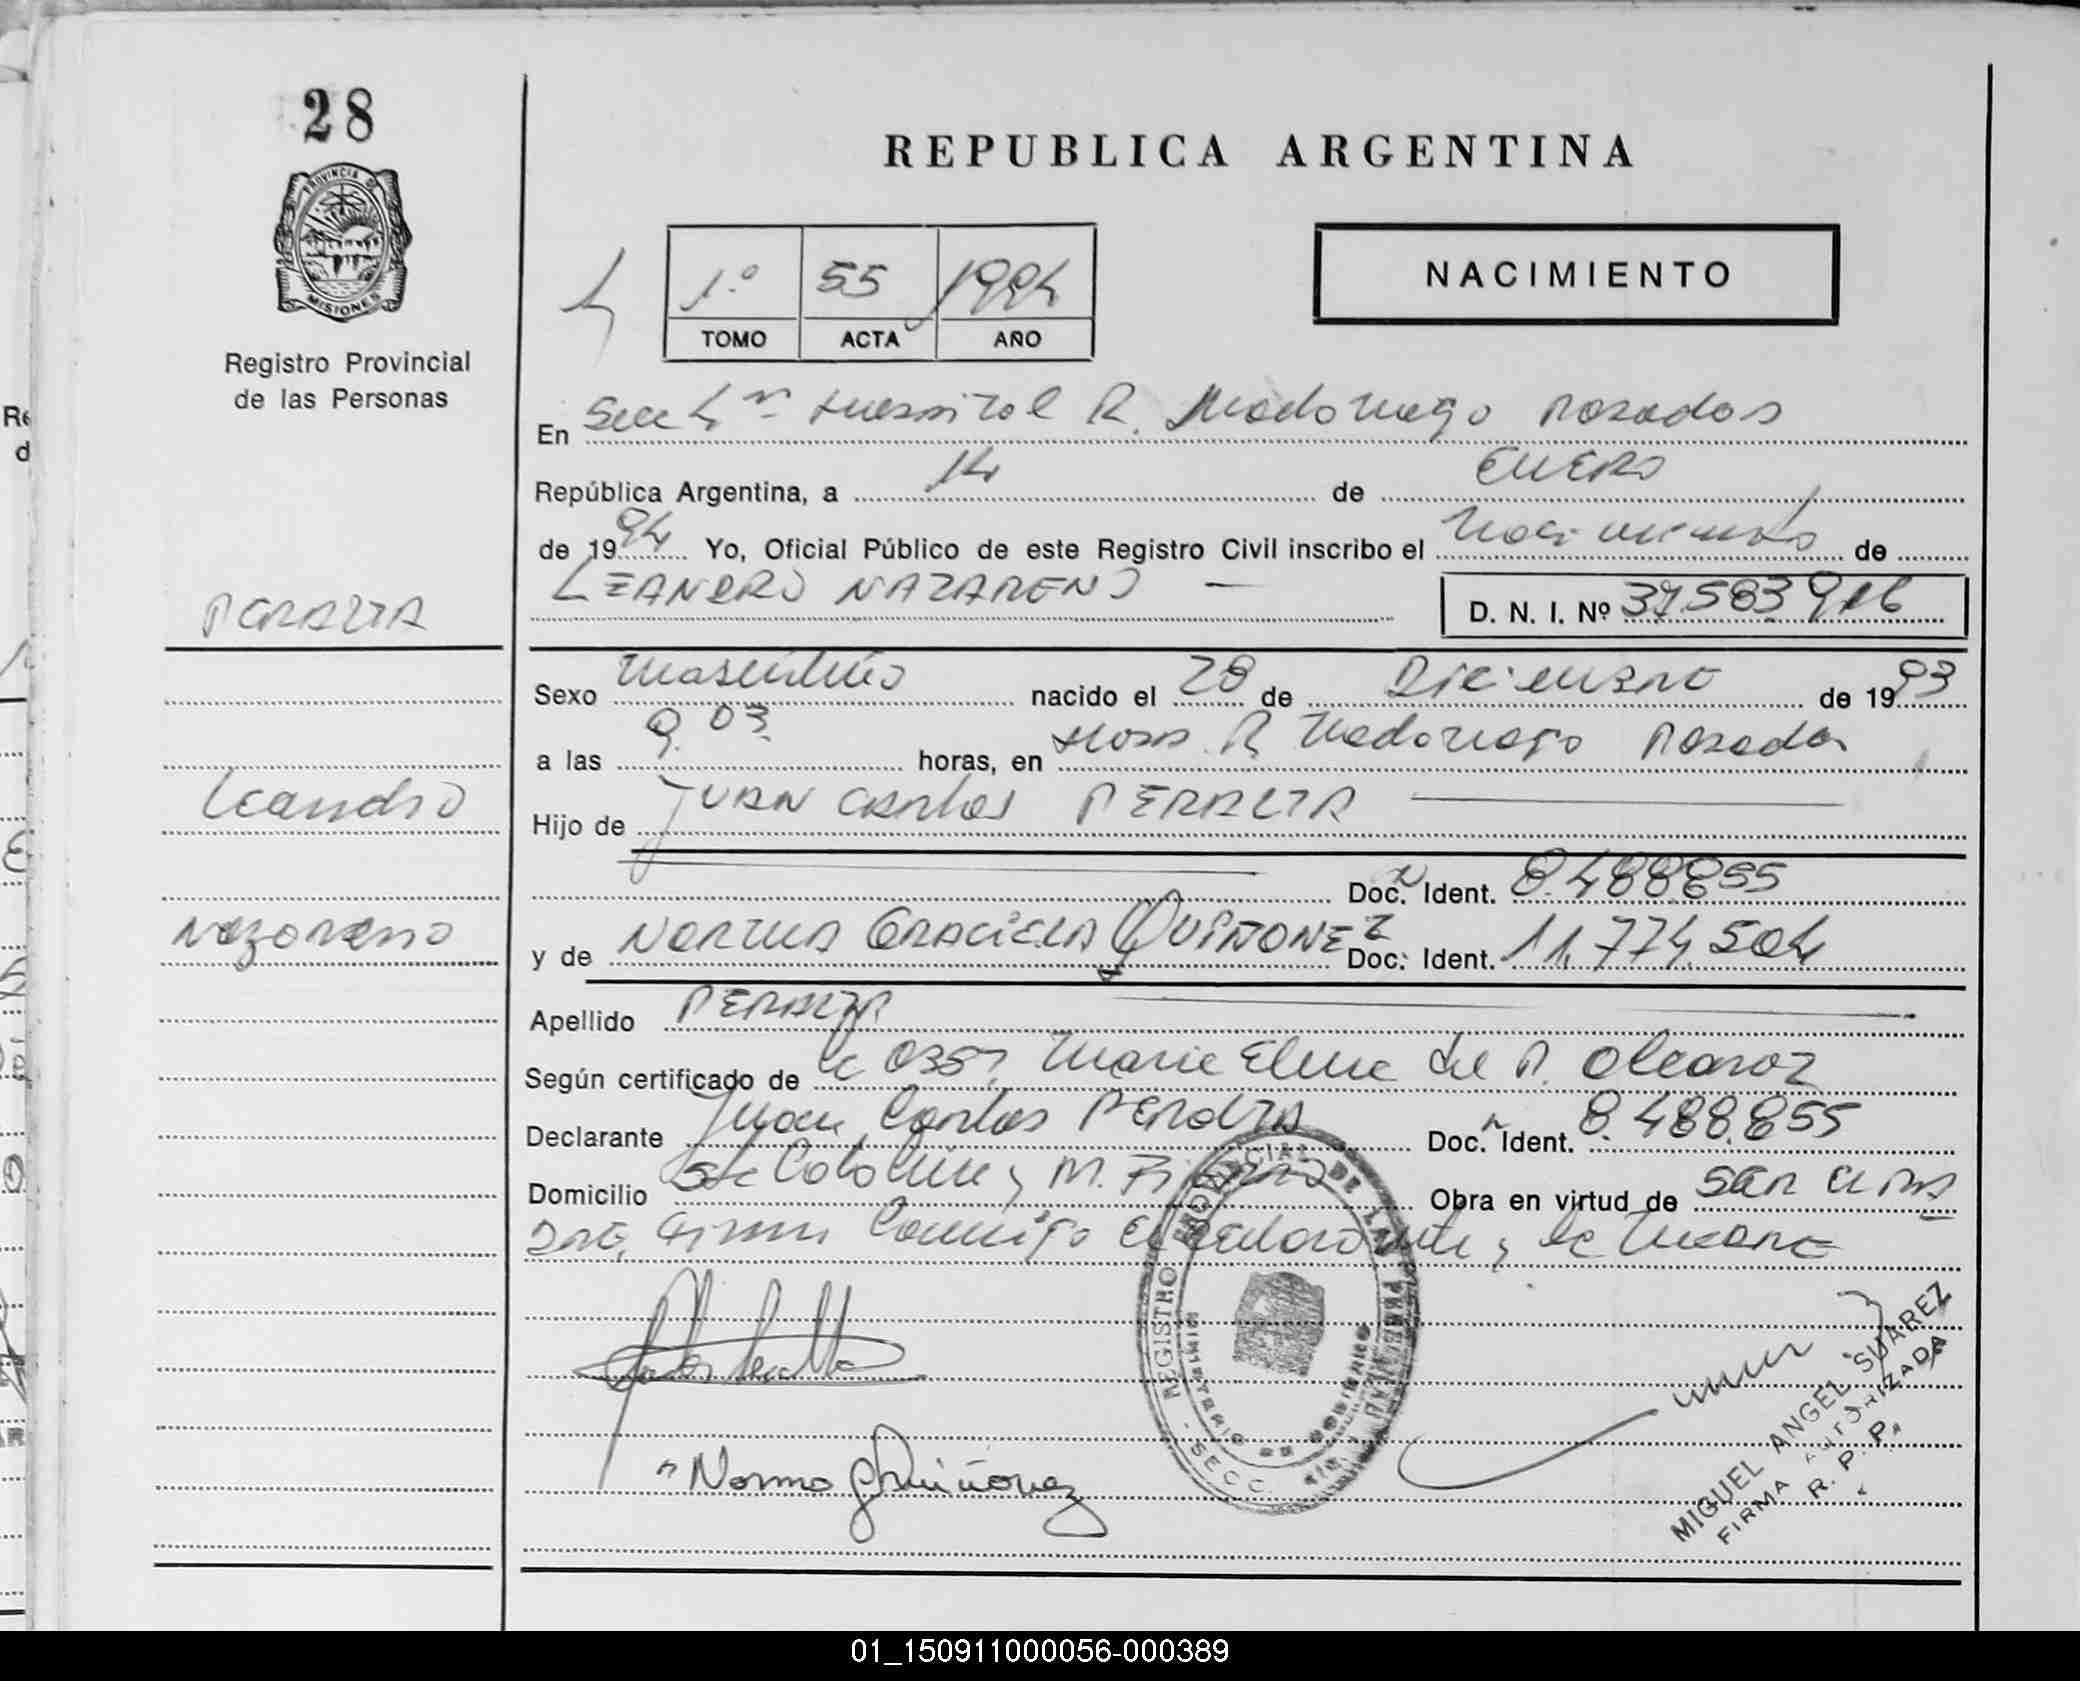 28
PROVINCIA DE
MISIONES
Registro Provincial
de las Personas
PERALTA
Leandro
Nazareno
REPUBLICA ARGENTINA
1º 55 1994
TOMO ACTA AÑO
NACIMIENTO
En Secc 4ª Hospital R. Madariaga Posadas
República Argentina, a 14 de ENERO
de 1994 Yo, Oficial Público de este Registro Civil inscribo el Nacimiento de
LEANDRO NAZARENO D. N. I. Nº 37.583.916
Sexo Masculino nacido el 28 de Diciembre de 1993
a las 9.03 horas, en Hosp. R. Madariaga Posadas
Hijo de JUAN CARLOS PERALTA
Doc. Ident. 8.488.855
y de NORMA GRACIELA QUIÑONEZ Doc. Ident. 11.774.504
Apellido PERALTA
Según certificado de la Obst. Maria Elena del P. Alcaraz
Declarante Juan Carlos PERALTA Doc. Ident. 8.488.855
Domicilio y M. Obra en virtud de
Firman Conmigo el declarante y la Madre
Norma Quiñonez
REGISTRO PROVINCIAL DE LAS PERSONAS
MINISTERIO DE GOBIERNO
SECC.
MIGUEL ANGEL SUAREZ
FIRMA AUTORIZADA
R. P. P.
01_150911000056-000389